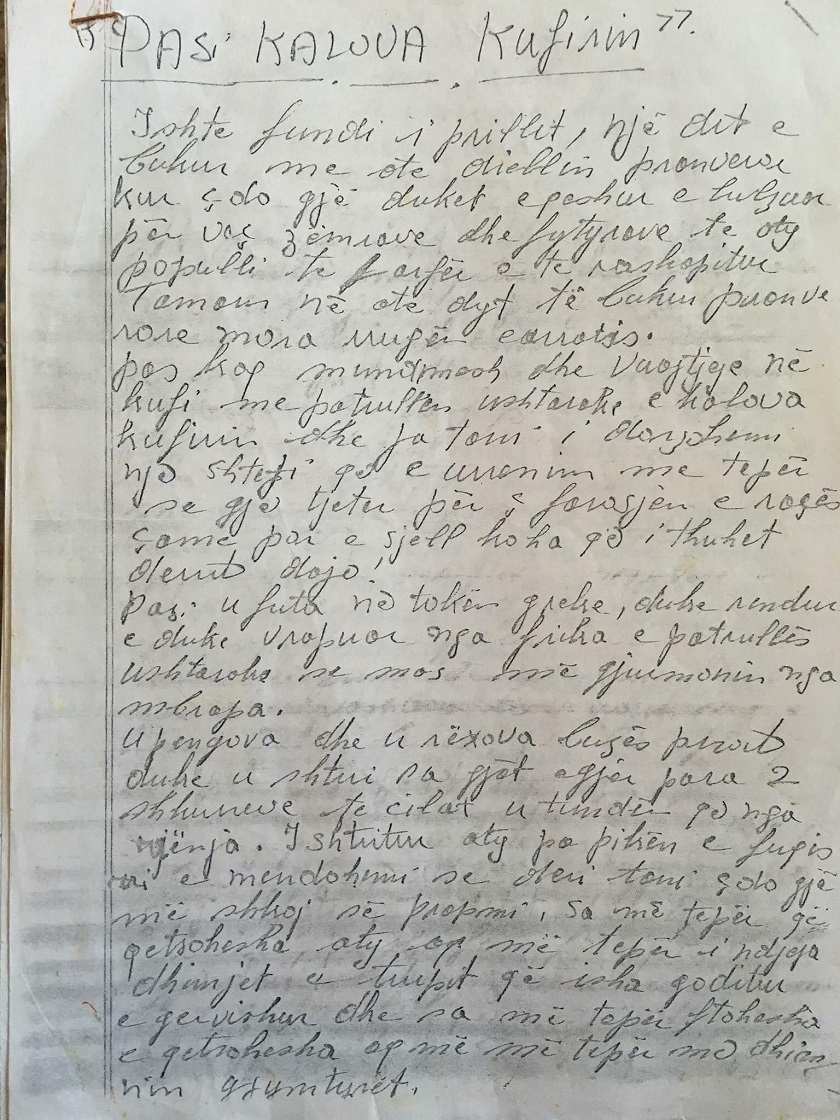 "PASi KALOVA Kufirin".
Ishte fundi i prillit, një dit e
bukur me ate diellin pranveror
kur çdo gjë duket e qeshur e lulzuar
për veç zëmrave dhe fytyrave te aty
populli te farfër e te raskapitur
Tamam në ate dyt të bukur pranve
rore mora rrugën e arratis.
pas kaq mundimesh dhe Vuajtjge në
kufi me patrullën ushtarake e kalova
kufirin dhe ja tani i dorzhemi
një shtepi që e urrenim me tepër
se gjë tjetër për ç farosjën e racës
çame por e sjell koha që i thuhet
derrit dajo!
Pasi u futa në tokën greke, duke rendur
e duke vrapuar nga frika e patrullës
ushtarake se mos më gjurmonin nga
mbrapa.
U pengova dhe u rëxova buzës prroit
duke u shtri sa gjët agjër para 2
shkurreve te cilat u tundën që nga
rrjënja. I shtritur aty pa pikën e fuqis
e mendohemi se deri tani çdo gjë
më shkoj së prapmi, sa më tepër që
qetsohesha aty aq më tepër i ndjeja
dhimjet e trupit që isha goditur
e gervishur dhe sa më tepër ftohesha
e qetsohesha aq më më tepër me dhim
nin gjymtyrët.